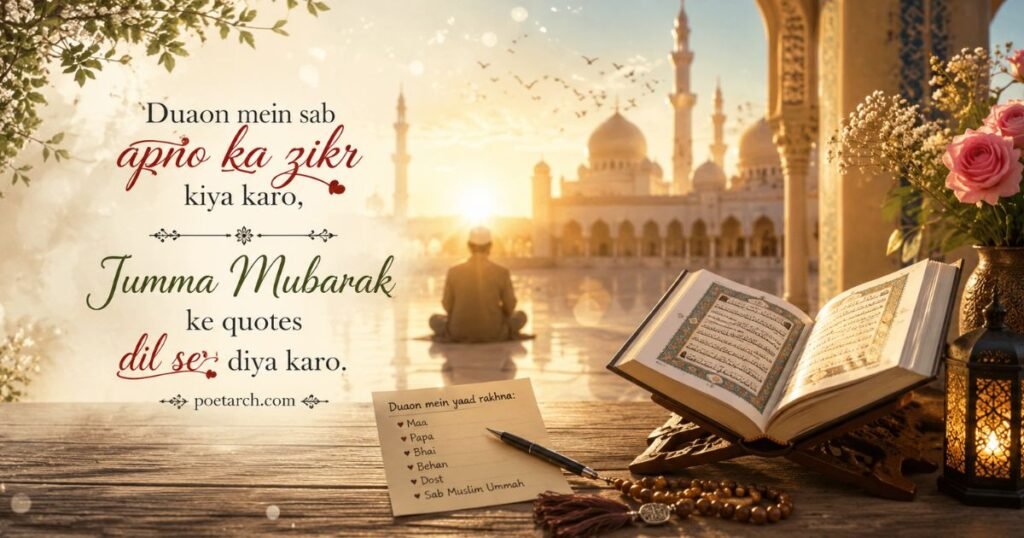 Duaon mein sab
apno ka zikr
kiya karo,
Jumma Mubarak
ke quotes
dil se diya karo.
poetarch.com
Duaon mein yaad rakhna:
Maa
Papa
Bhai
Behan
Dost
Sab Muslim Ummah